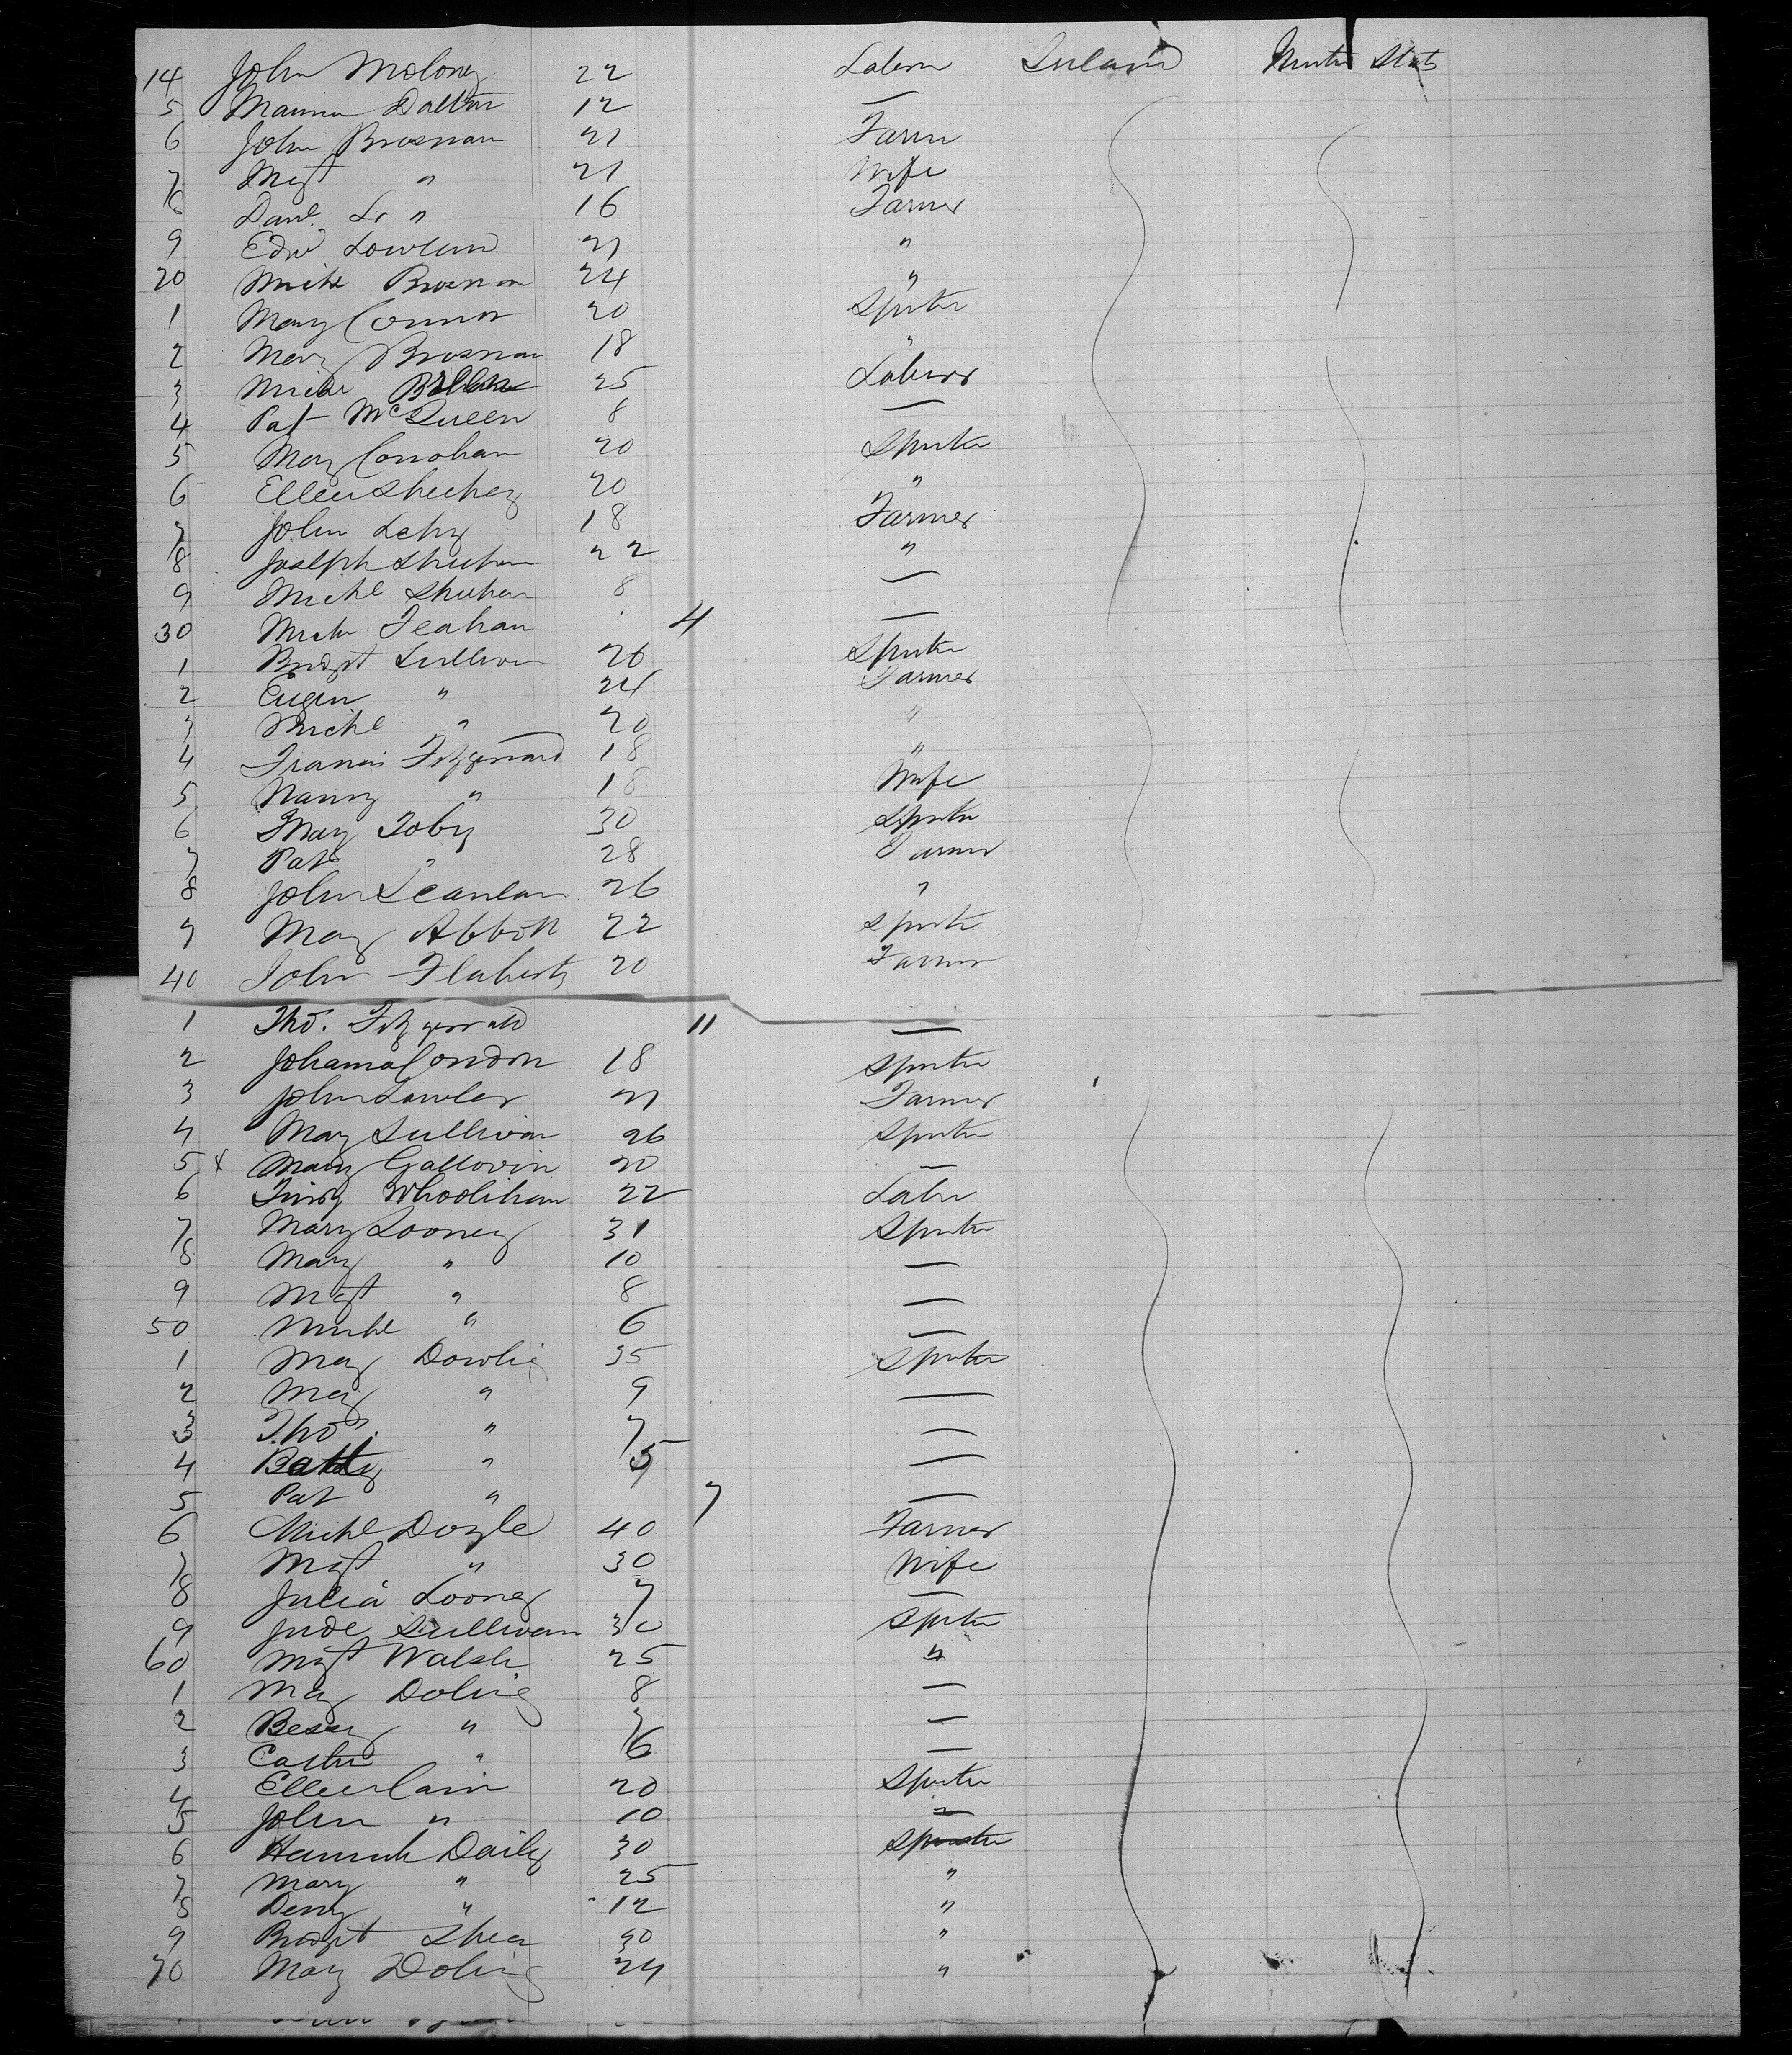 14 John Moloney 22 Labrer Ireland United States
5 Dalton 12 —
6 John Brosnan 21 Farmr
7 Mgt " 21 Wife
8 Danl. " 16 Farmer
9 Edwd 21 "
20 Michl Brosnan 24 "
1 Mary Connor 20 Spnstr
2 Mary Brosnan 18 "
3 Michl 25 Laburer
4 Pat McQueen 8 —
5 Mary Conohan 20 Spnstr
6 Ellen Sheehey 20 "
7 John Lehy 18 Farmer
8 Joseph Sheehan 22 "
9 Michl Sheehan 8 —
30 Michl Feahan 4 —
1 Bridgt Sullivan 26 Spnstr
2 Eugen " 24 Farmer
3 Michl " 20 "
4 Francis Fitzgerrard 18 "
5 Nancy " 18 Wife
6 Mary Toby 30 Spnstr
7 Patk " 28 Farmer
8 John Scanlan 26 "
9 Mary Abbott 22 Spnstr
40 John Flaherty 20 Farmer
1 Tho. Fitzgerrald 11 —
2 Johanna Condon 18 Spnstr
3 John Lawler 21 Farmer
4 Mary Sullivan 26 Spnstr
5 x Mary Gallovin 20 —
6 Timy Whoolihan 22 Labr
7 Mary Looney 31 Spnstr
8 Mary " 10 —
9 Mgt " 8 —
50 Michl " 6 —
1 Mary Dowlig 35 Spnstr
2 Mary " 9 —
3 Thos. " 7 —
4 Batty " 5 —
5 Pat " 7 —
6 Michl Doyle 40 Farmer
7 Mgt " 30 Wife
8 Julia Looney 7 —
9 Jude Sullivan 30 Spnstr
60 Mgt Walsh 25 "
1 Mary Doling 8 —
2 Bessy " 7 —
3 Cathn " 6 —
4 Ellen Cain 20 Spnstr
5 John " 10 —
6 Hannah Daily 30 Spnstr
7 Mary " 25 "
8 Deny " 12 "
9 Bridgt Shea 30 "
70 Mary Doling 24 "